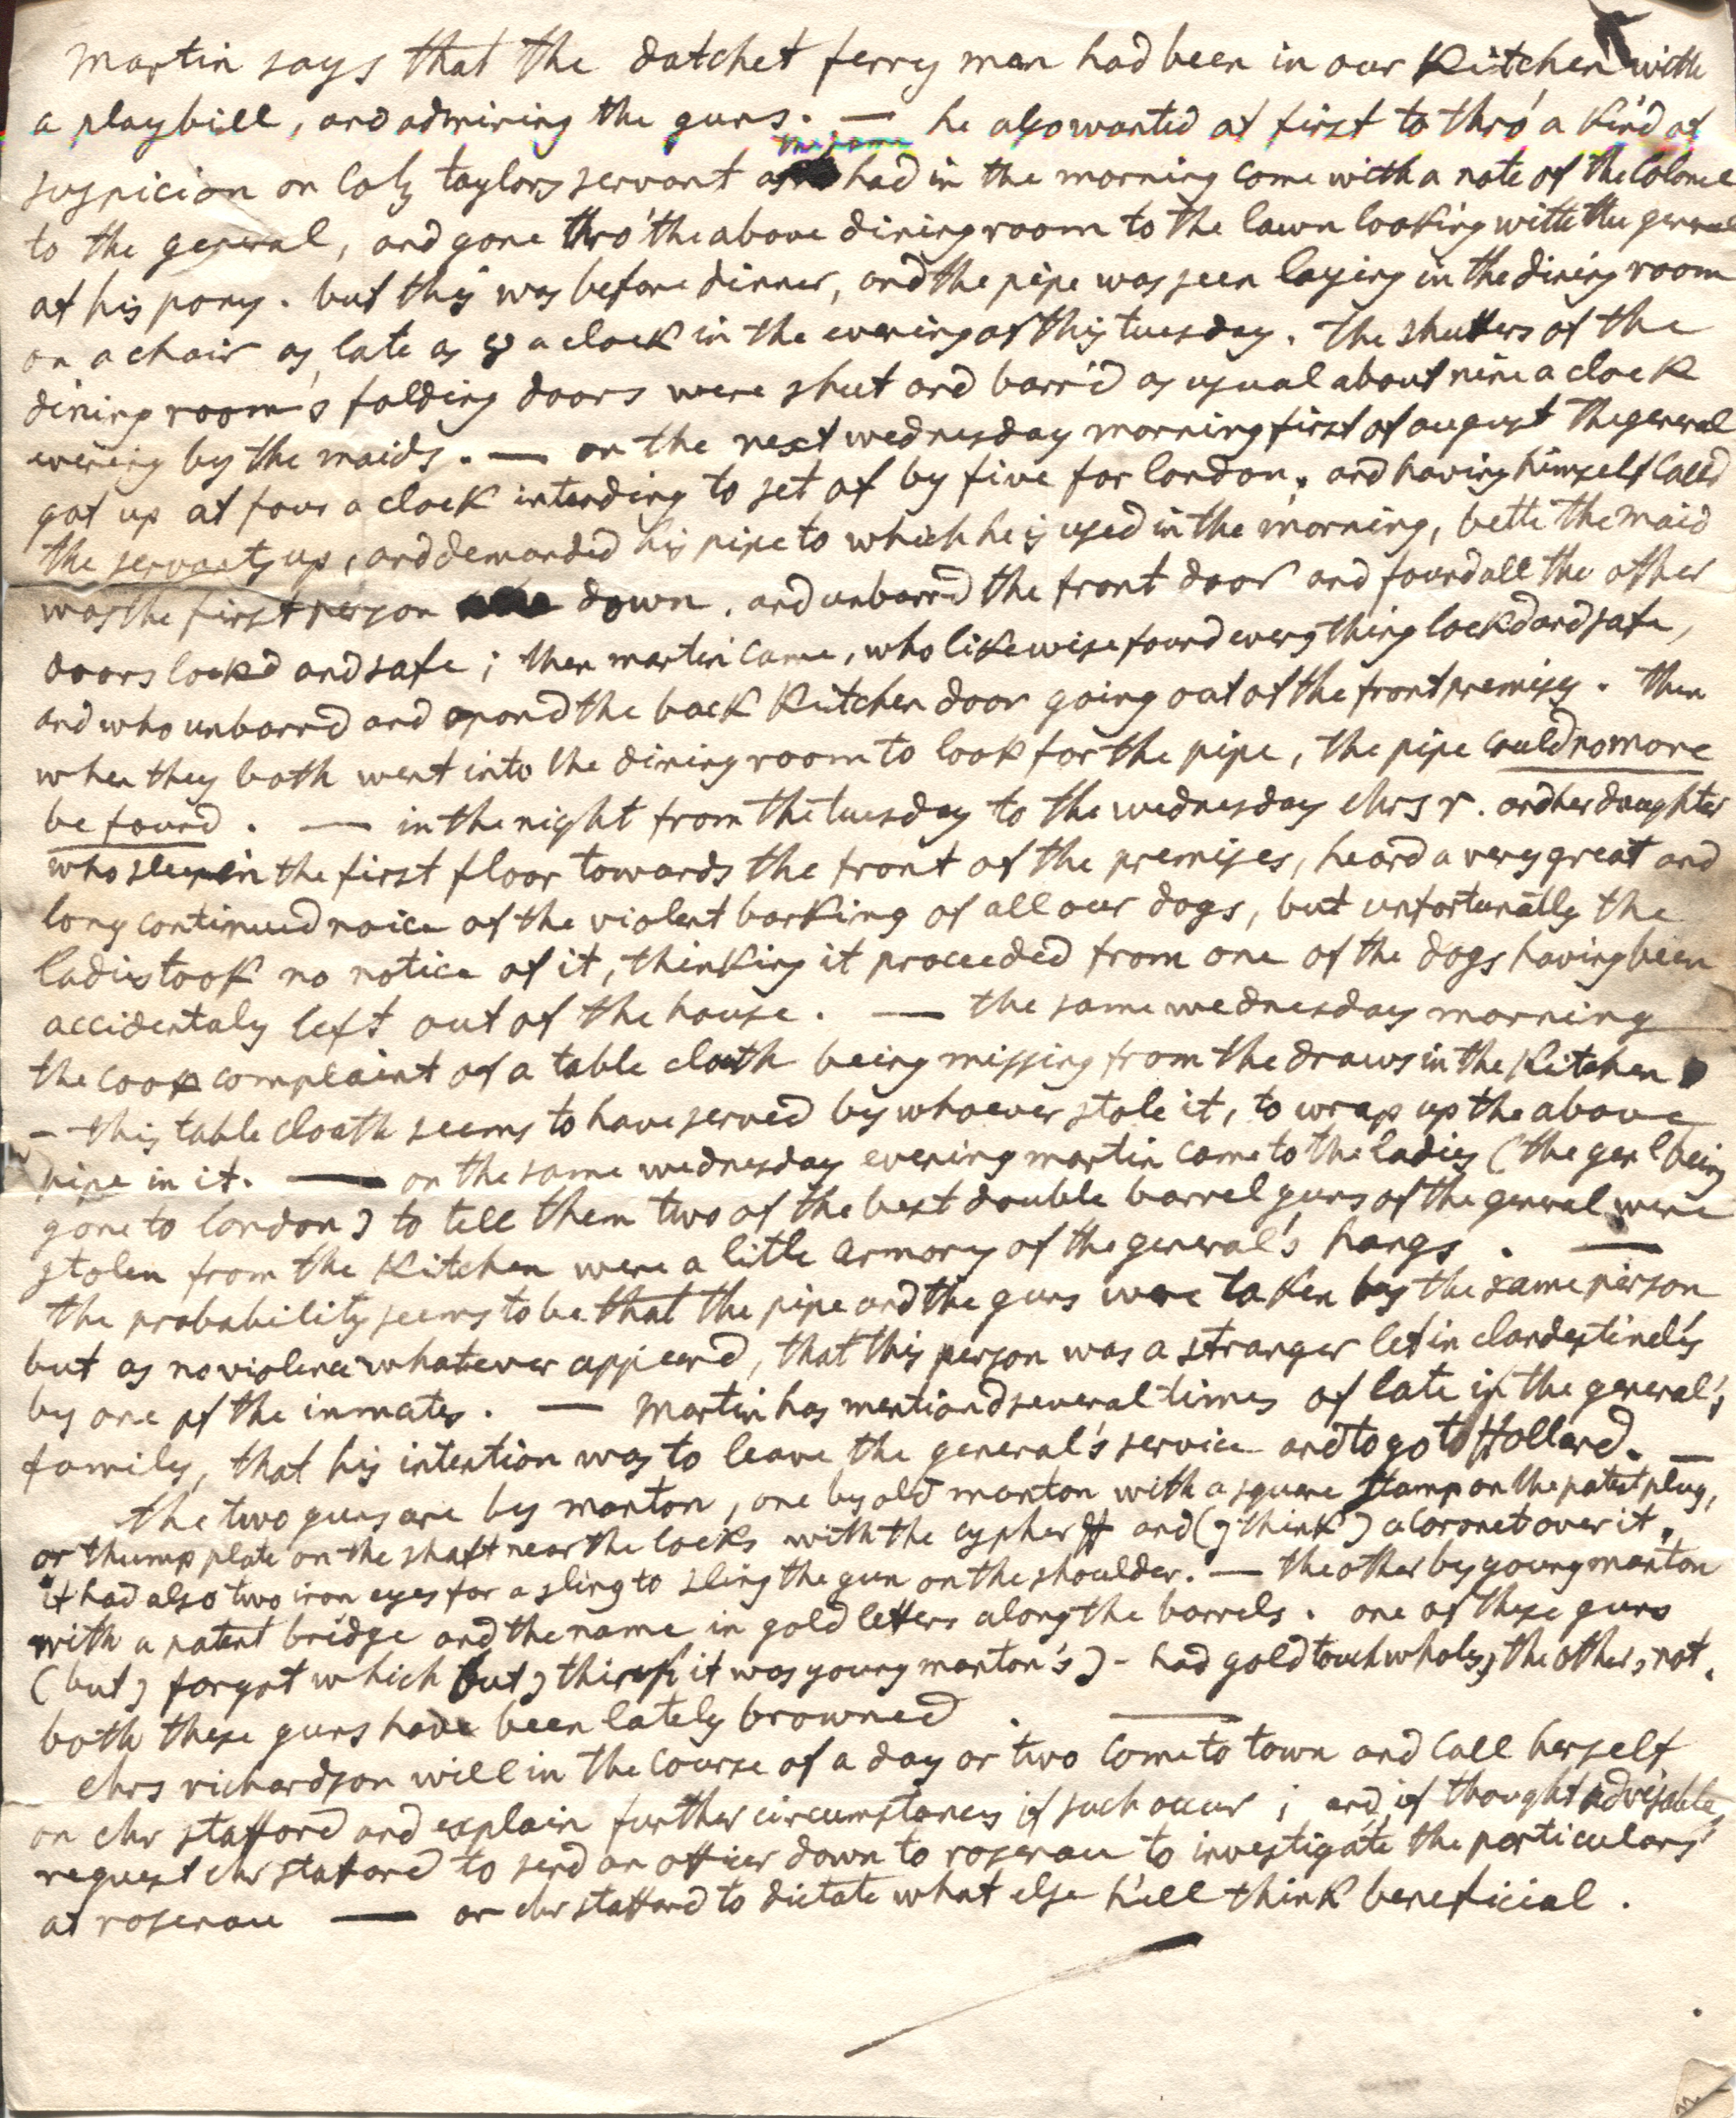 martin says that the datchet ferry man had been in our Kitchen with
a playbill, and admiring the guns. — he also wanted at first to thro' a kind of
suspicion on Col; taylors servant as had in the morning come with a note of the Colonel
to the general, and gone thro' the above diningroom to the lawn looking with the general
at his pony. but this was before dinner, and the pipe was seen laying in the dining room
on a chair as late as 8 a clock in the evening of this tuesday. the shutters of the
dining room's folding doors were shut and barr'd as usual about nine a clock
evening by the maids. — on the next wednesday morning first of august the general
got up at four a clock intending to set of by five for london. and having himself call'd
the servants up, and demanded his pipe to which he is used in the morning, bette the maid
was the first person down, and unbarrd the front door and found all the other
doors lockd and safe; then martin came, who likewise found every thing lockd and safe,
and who unbarrd and opend the back Kitchen door going out of the front premises. then
when they both went into the dining room to look for the pipe, the pipe could no more
be found. — in the night from the tuesday to the wednesday Mrs r. and her daughter
who sleep in the first floor towards the front of the premises, heard a very great and
long continued noice of the violent barking of all our dogs, but unfortunatly the
ladies took no notice of it, thinking it proceeded from one of the dogs having been
accidentaly left out of the house. — the same wednesday morning
the cook complaint of a table cloath being missing from the draws in the Kitchen
— this table cloath seems to have served by whoever stole it, to wrap up the above
pipe in it. — on the same wednesday evening martin came to the ladies (the genl being
gone to london) to tell them two of the best double barrel guns of the general were
stolen from the Kitchen were a litle armory of the general's hangs. —
the probability seems to be that the pipe and the guns were taken by the same person
but as no violence whatever appeerd, that this person was a stranger let in clandestinely
by one of the inmates. — Martin has mentiond several times of late in the general's
family, that his intention was to leave the general's service and to go to Holland. —
the two guns are by manton, one by old manton with a square stamp on the patent plug,
or thump plate on the shaft near the locks with the cypher ff and (j think) a Coronet over it.
it had also two iron eyes for a sling to sling the gun on the shoulder. — the other by young manton
with a patent bridge and the name in gold letters along the barrels. one of these guns
(but j forgot which but j think it was young manton's) - had gold touch wholes, the other, not.
both these guns have been lately browned. —
Mrs richardson will in the course of a day or two come to town and call herself
on Mr stafford and explain further circumstances if such occur; and, if thought advisable,
request Mr stafford to send an officer down to rosenau to investigate the particulars
at rosenau — or Mr stafford to dictate what else h'ell think beneficial.